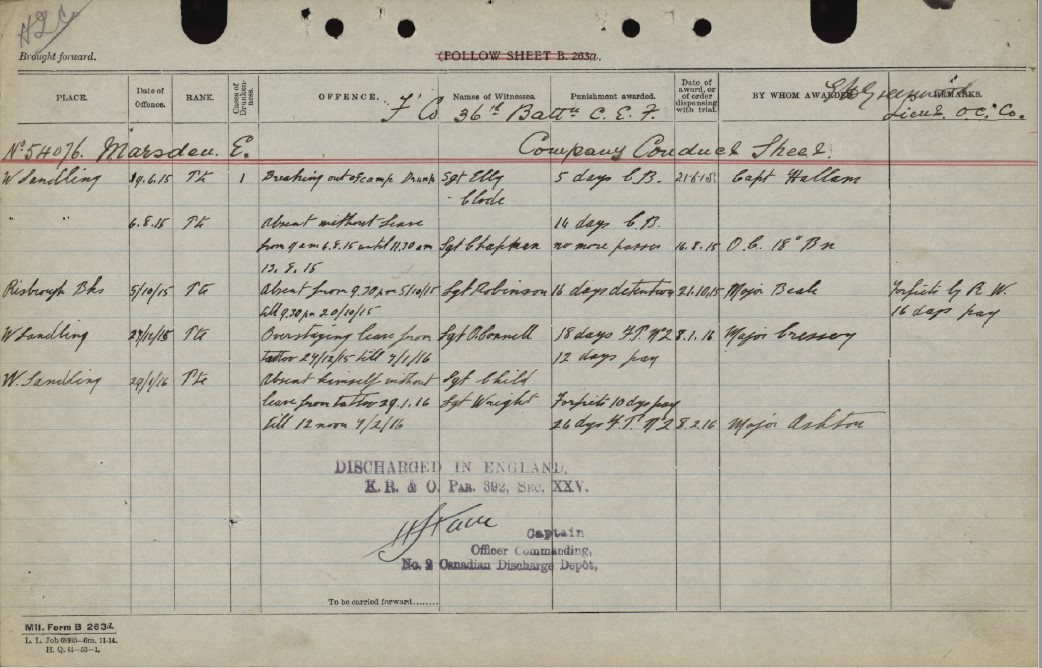 H Q Co
Brought forward.
(FOLLOW SHEET B. 263a.
PLACE. Date of Offence. RANK. Cases of Drunkenness. OFFENCE. Names of Witnesses. Punishment awarded. Date of award, or of order dispensing with trial. BY WHOM AWARDED. REMARKS.
"F" Co 36th Battn C. E. F. Lieut. O.C. " Co.
No. 54076. Marsden. E. Company Conduct Sheet.
W Sandling 19.6.15 Pte 1 Breaking out of camp Drunk Sgt Elly 5 days C.B. 21.6.15 Capt Hallam
" Clode
" " 6.8.15 Pte Absent without leave 14 days C.B.
from 9 am 6.8.15 until 11.30 am Sgt Chapman no more passes 16.8.15 O.C. 18th Bn
13.8.15
Risbrough Bks 5/10/15 Pte Absent from 9.30 pm 5/10/15 Sgt Robinson 16 days detention 21.10.15 Major Beale Forfeits by R.W.
till 9.30 pm 20/10/15 16 days pay
W Sandling 27/12/15 Pte Overstaying leave from Sgt O'Connell 18 days F.P. No 2 8.1.16 Major Cressey
tattoo 27/12/15 till 7/1/16 12 days pay
W. Sandling 29/1/16 Pte Absent himself without Sgt Child
leave from tattoo 29.1.16 Sgt Wright Forfeits 10 dys pay
till 12 noon 7/2/16 26 dys F.P. No 2 8.2.16 Major Ashton
DISCHARGED IN ENGLAND,
K. R. & O. PAR. 392, SEC. XXV.
Captain
Officer Commanding,
No. 2 Canadian Discharge Depôt,
To be carried forward........
Mil. Form B 263a.
L. L. Job 69105—6m. 11-14.
H. Q. 41—53—1.